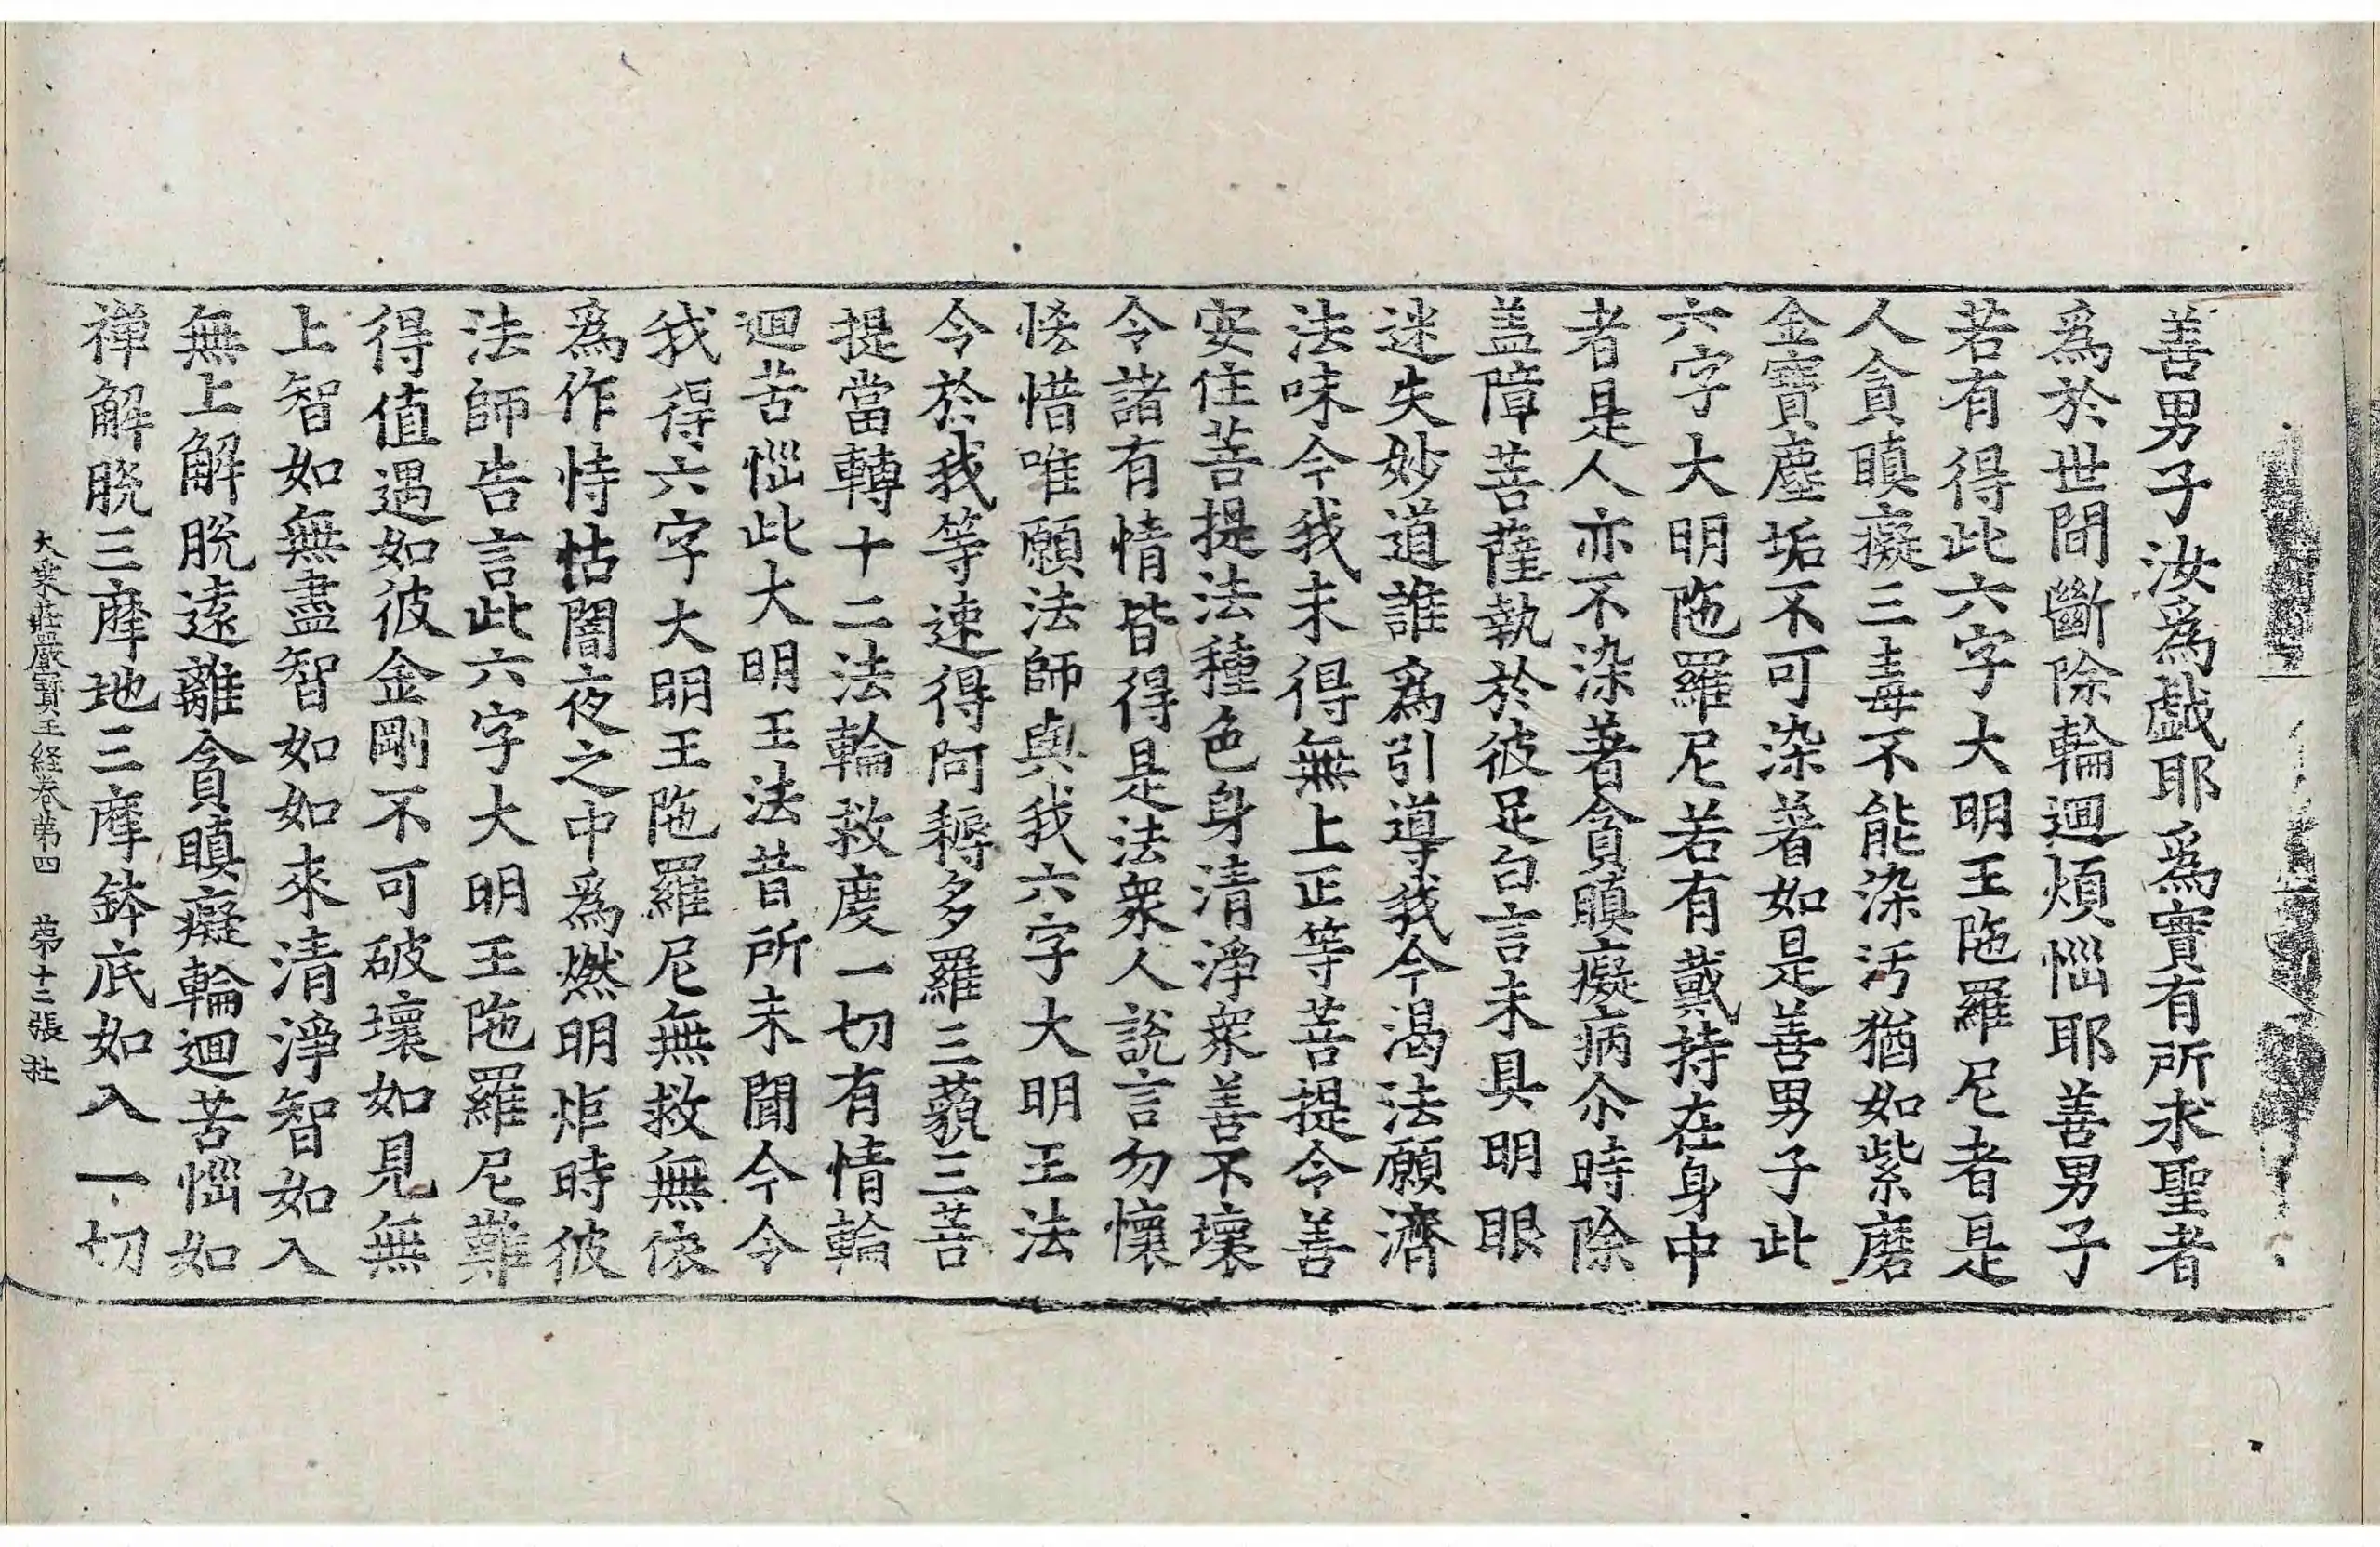 善男子汝爲戯耶爲實有所求聖者
爲於世間斷除輪迴煩惱耶善男子
若有得此六字大明王陁羅尼者是
人貪瞋癡三毒不能染汚猶如紫磨
金寶塵垢不可染著如是善男子此
六字大明陁羅尼若有戴持在身中
者是人亦不染著貪瞋癡病尒時除
盖障菩薩執於彼足白言未具明眼
迷失妙道誰爲引導我今渴法願濟
法味今我未得無上正等菩提令善
安住菩提法種色身清淨衆善不壞
令諸有情皆得是法衆人說言勿懷
恡惜唯願法師與我六字大明王法
令於我等速得阿耨多羅三藐三菩
提當轉十二法輪救度一切有情輪
迴苦惱此大明王法昔所未聞今令
我得六字大明王陁羅尼無救無依
爲作恃怙闇夜之中爲燃明炬時彼
法師告言此六字大明王陁羅尼難
得值遇如彼金剛不可破壞如見無
上智如無盡智如如來清淨智如入
無上解脫遠離貪瞋癡輪迴苦惱如
禪解脫三摩地三摩鉢底如入一切
大乘莊嚴寶王経卷第四　第十二張